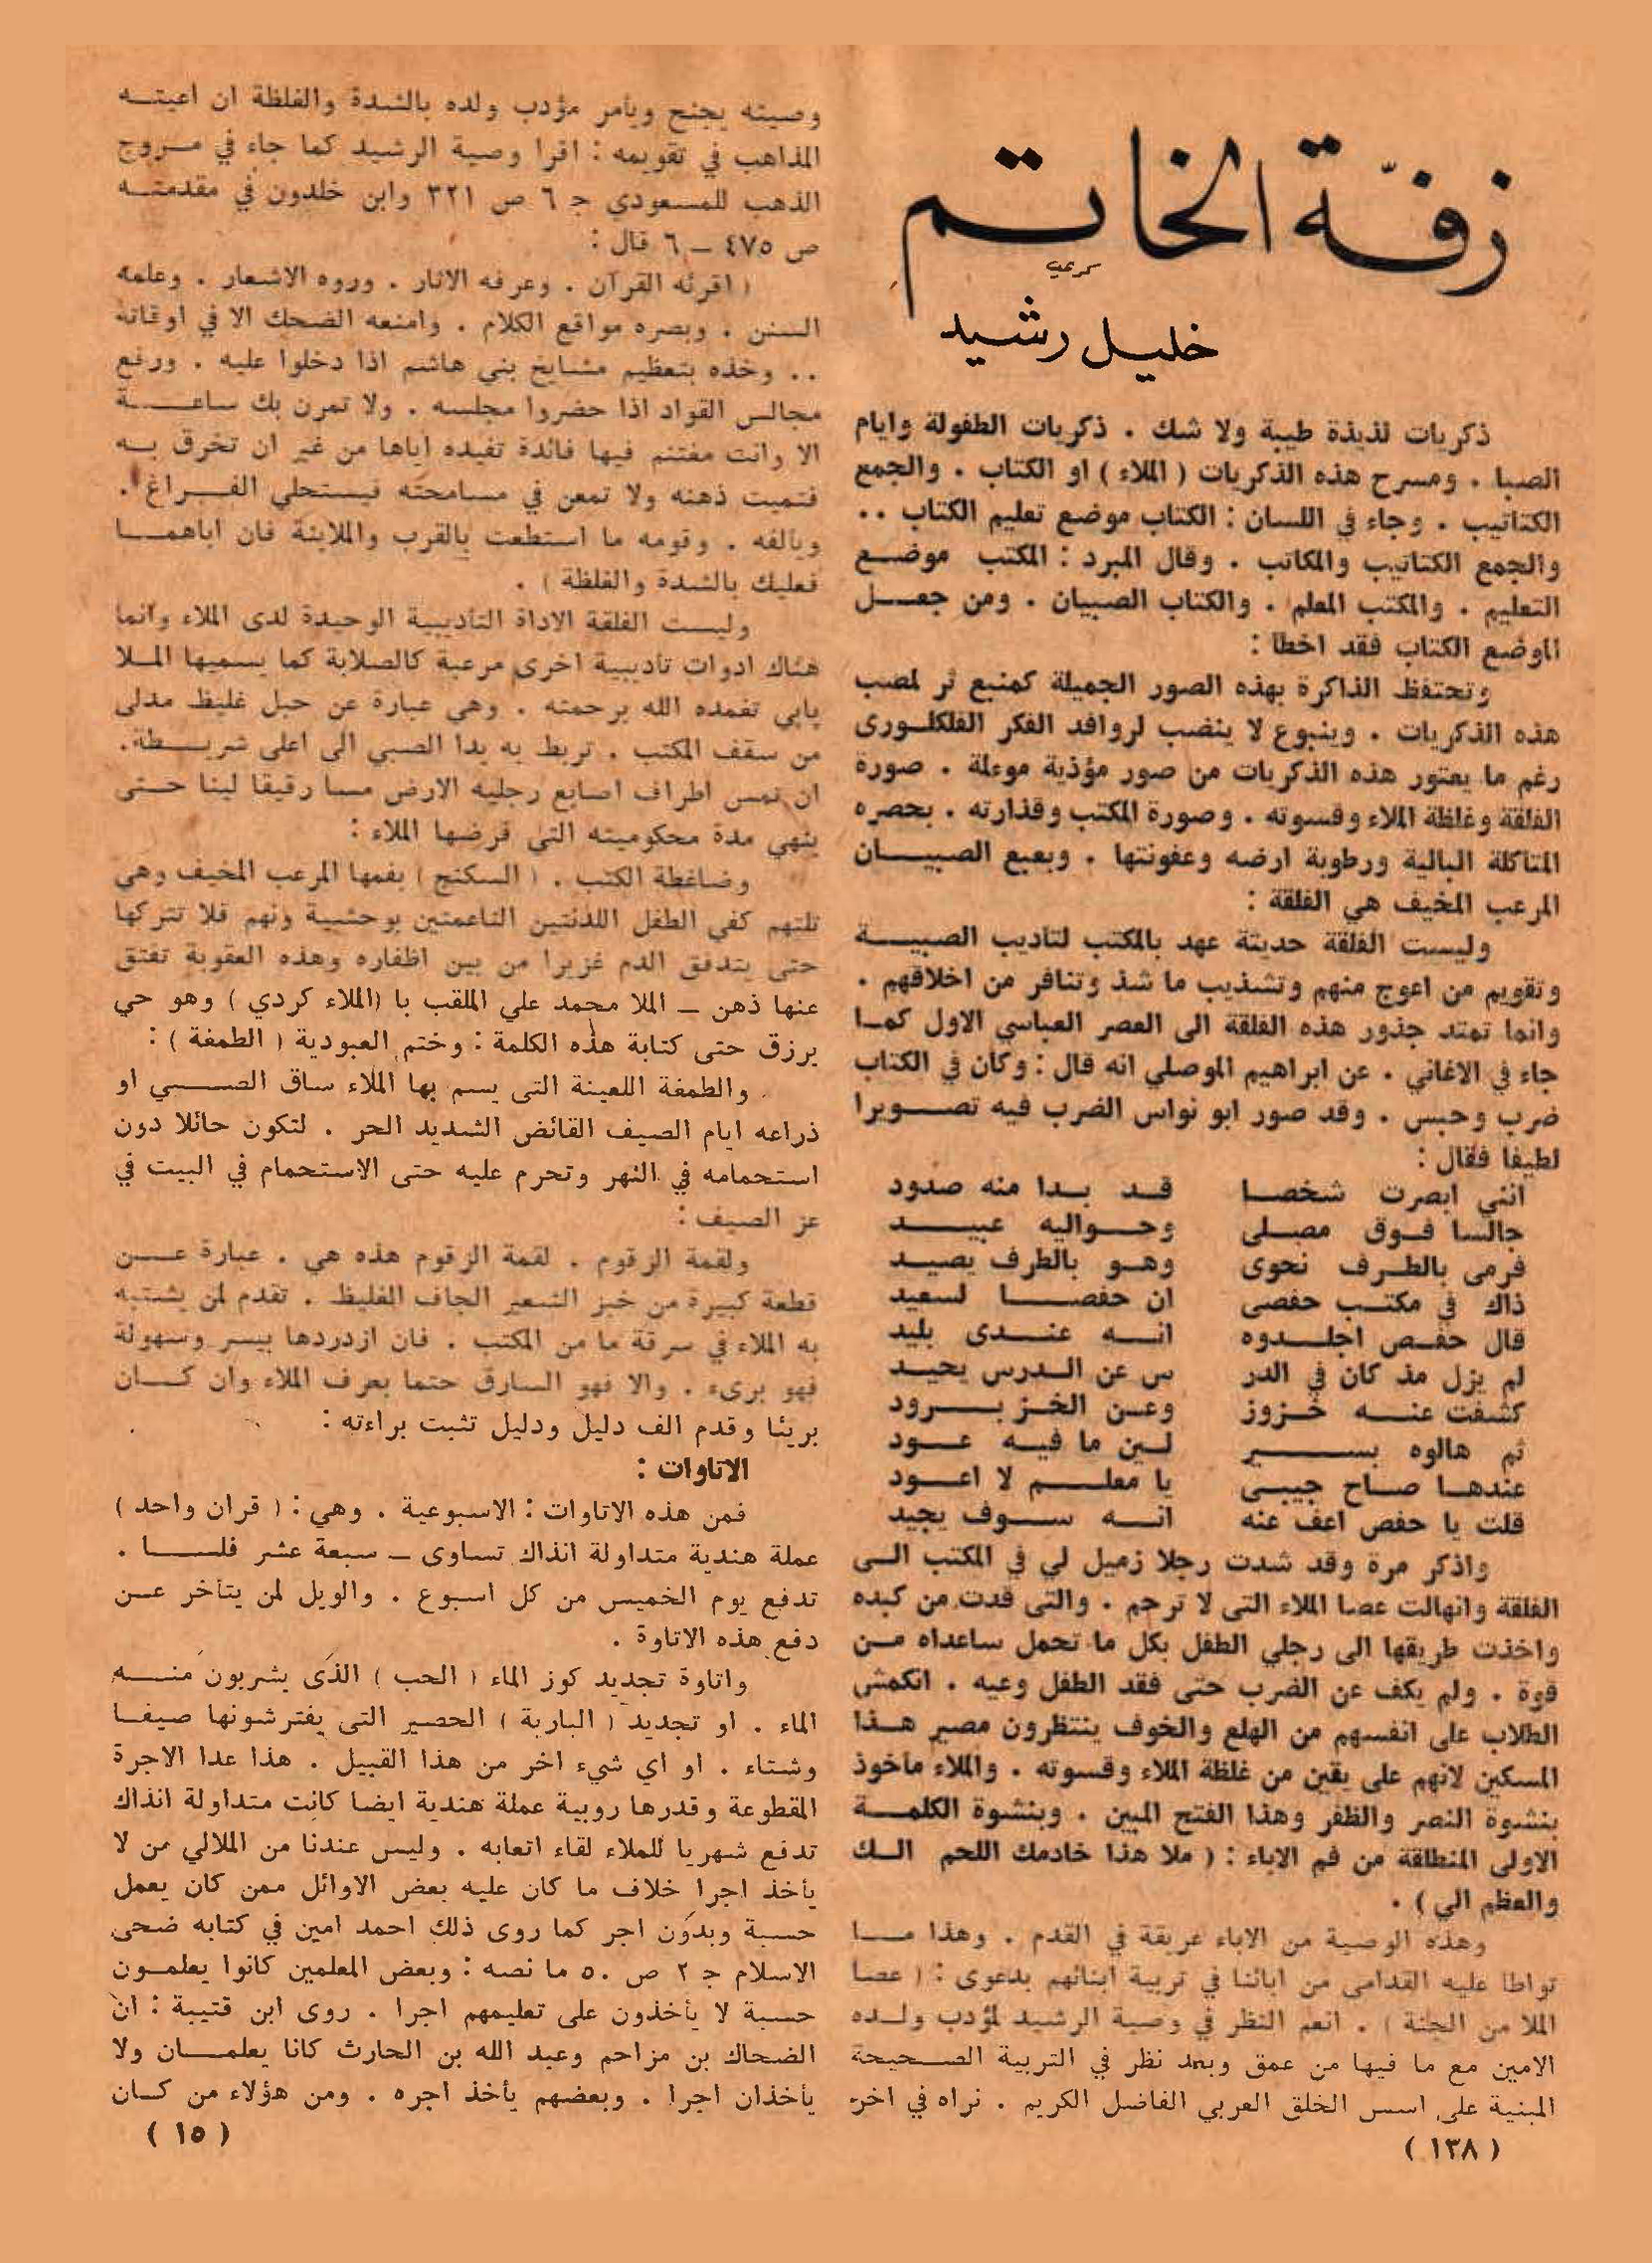 زفّة الخاتم
كريمي
خليل رشيد
ذكريات لذيذة طيبة ولا شك . ذكريات الطفولة وايام
الصبا . ومسرح هذه الذكريات ( الملاء ) او الكتاب . والجمع
الكتاتيب . وجاء في اللسان : الكتاب موضع تعليم الكتاب ..
والجمع الكتاتيب والمكاتب . وقال المبرد : المكتب موضع
التعليم . والمكتب المعلم . والكتاب الصبيان . ومن جعل
الموضع الكتاب فقد اخطا :
وتحتفظ الذاكرة بهذه الصور الجميلة كمنبع ثر لمصب
هذه الذكريات . وينبوع لا ينضب لروافد الفكر الفلكلورى
رغم ما يعتور هذه الذكريات من صور مؤذية موءلة . صورة
الفلقة وغلظة الملاء وقسوته . وصورة المكتب وقذارته . بحصره
المتاكلة البالية ورطوبة ارضه وعفونتها . وبعبع الصبيان
المرعب المخيف هي الفلقة :
وليست الفلقة حديثة عهد بالمكتب لتاديب الصبية
وتقويم من اعوج منهم وتشذيب ما شذ وتنافر من اخلاقهم .
وانما تمتد جذور هذه الفلقة الى العصر العباسي الاول كما
جاء في الاغاني . عن ابراهيم الموصلي انه قال : وكان في الكتاب
ضرب وحبس . وقد صور ابو نواس الضرب فيه تصويرا
لطيفا فقال :
انني ابصرت شخصا قد بدا منه صدود
جالسا فوق مصلى وحواليه عبيد
فرمى بالطرف نحوى وهو بالطرف يصيد
ذاك في مكتب حفصى ان حفصا لسعيد
قال حفص اجلدوه انه عندى بليد
لم يزل مذ كان في الدر س عن الدرس يحيد
كشفت عنه خزوز وعن الخز برود
ثم هالوه بسير لين ما فيه عود
عندها صاح جيبى يا معلم لا اعود
قلت يا حفص اعف عنه انه سوف يجيد
واذكر مرة وقد شدت رجلا زميل لي في المكتب الى
الفلقة وانهالت عصا الملاء التى لا ترحم . والتى قدت من كبده
واخذت طريقها الى رجلي الطفل بكل ما تحمل ساعداه من
قوة . ولم يكف عن الضرب حتى فقد الطفل وعيه . انكمش
الطلاب على انفسهم من الهلع والخوف ينتظرون مصير هذا
المسكين لانهم على يقين من غلظة الملاء وقسوته . والملاء ماخوذ
بنشوة النصر والظفر وهذا الفتح المبين . وبنشوة الكلمة
الاولى المنطلقة من فم الاباء : ( ملا هذا خادمك اللحم الك
والعظم الي ) .
وهذه الوصية من الاباء عريقة في القدم . وهذا ما
تواطا عليه القدامى من ابائنا في تربية ابنائهم بدعوى : ( عصا
الملا من الجنة ) . انعم النظر في وصية الرشيد لمؤدب ولده
الامين مع ما فيها من عمق وبعد نظر في التربية الصحيحة
المبنية على اسس الخلق العربي الفاضل الكريم . نراه في اخر
( ١٣٨ )
وصيته يجنح ويأمر مؤدب ولده بالشدة والغلظة ان اعيته
المذاهب في تقويمه : اقرا وصية الرشيد كما جاء في مروج
الذهب للمسعودي ج ٦ ص ٣٢١ وابن خلدون في مقدمته
ص ٤٧٥ – ٦ قال :
( اقرئه القرآن . وعرفه الاثار . وروه الاشعار . وعلمه
السنن . وبصره مواقع الكلام . وامنعه الضحك الا في اوقاته
.. وخذه بتعظيم مشايخ بني هاشم اذا دخلوا عليه . ورفع
مجالس القواد اذا حضروا مجلسه . ولا تمرن بك ساعة
الا وانت مغتنم فيها فائدة تفيده اياها من غير ان تخرق به
فتميت ذهنه ولا تمعن في مسامحته فيستحلي الفراغ .
ويألفه . وقومه ما استطعت بالقرب والملاينة فان اباهما
فعليك بالشدة والغلظة ) .
وليست الفلقة الاداة التأديبية الوحيدة لدى الملاء وانما
هناك ادوات تأديبية اخرى مرعبة كالصلابة كما يسميها الملا
يابي تغمده الله برحمته . وهي عبارة عن حبل غليظ مدلى
من سقف المكتب . تربط به يدا الصبي الى اعلى شريطة .
ان تمس اطراف اصابع رجليه الارض مسا رقيقا لينا حتى
ينهي مدة محكوميته التي فرضها الملاء :
وضاغطة الكتب . ( السكنج ) بفمها المرعب المخيف وهي
تلتهم كفي الطفل اللدنتين الناعمتين بوحشية ونهم فلا تتركها
حتى يتدفق الدم غزيرا من بين اظفاره وهذه العقوبة تفتق
عنها ذهن – الملا محمد علي الملقب با (الملاء كردي ) وهو حي
يرزق حتى كتابة هذه الكلمة : وختم العبودية ( الطمغة ) :
والطمغة اللعينة التى يسم بها الملاء ساق الصبي او
ذراعه ايام الصيف القائض الشديد الحر . لتكون حائلا دون
استحمامه في النهر وتحرم عليه حتى الاستحمام في البيت في
عز الصيف :
ولقمة الزقوم . لقمة الزقوم هذه هي . عبارة عن
قطعة كبيرة من خبز الشعير الجاف الغليظ . تقدم لمن يشتبه
به الملاء في سرقة ما من المكتب . فان ازدردها بيسر وسهولة
فهو برىء . والا فهو السارق حتما بعرف الملاء وان كان
بريئا وقدم الف دليل ودليل تثبت براءته :
الاتاوات :
فمن هذه الاتاوات : الاسبوعية . وهي : ( قران واحد )
عملة هندية متداولة انذاك تساوى – سبعة عشر فلسا .
تدفع يوم الخميس من كل اسبوع . والويل لمن يتأخر عن
دفع هذه الاتاوة .
واتاوة تجديد كوز الماء ( الحب ) الذى يشربون منه
الماء . او تجديد ( البارية ) الحصير التى يفترشونها صيفا
وشتاء . او اي شيء اخر من هذا القبيل . هذا عدا الاجرة
المقطوعة وقدرها روبية عملة هندية ايضا كانت متداولة انذاك
تدفع شهريا للملاء لقاء اتعابه . وليس عندنا من الملالي من لا
يأخذ اجرا خلاف ما كان عليه بعض الاوائل ممن كان يعمل
حسبة وبدون اجر كما روى ذلك احمد امين في كتابه ضحى
الاسلام ج ٢ ص ٥٠ ما نصه : وبعض المعلمين كانوا يعلمون
حسبة لا يأخذون على تعليمهم اجرا . روى ابن قتيبة : ان
الضحاك بن مزاحم وعبد الله بن الحارث كانا يعلمان ولا
يأخذان اجرا . وبعضهم يأخذ اجره . ومن هؤلاء من كان
( ١٥ )